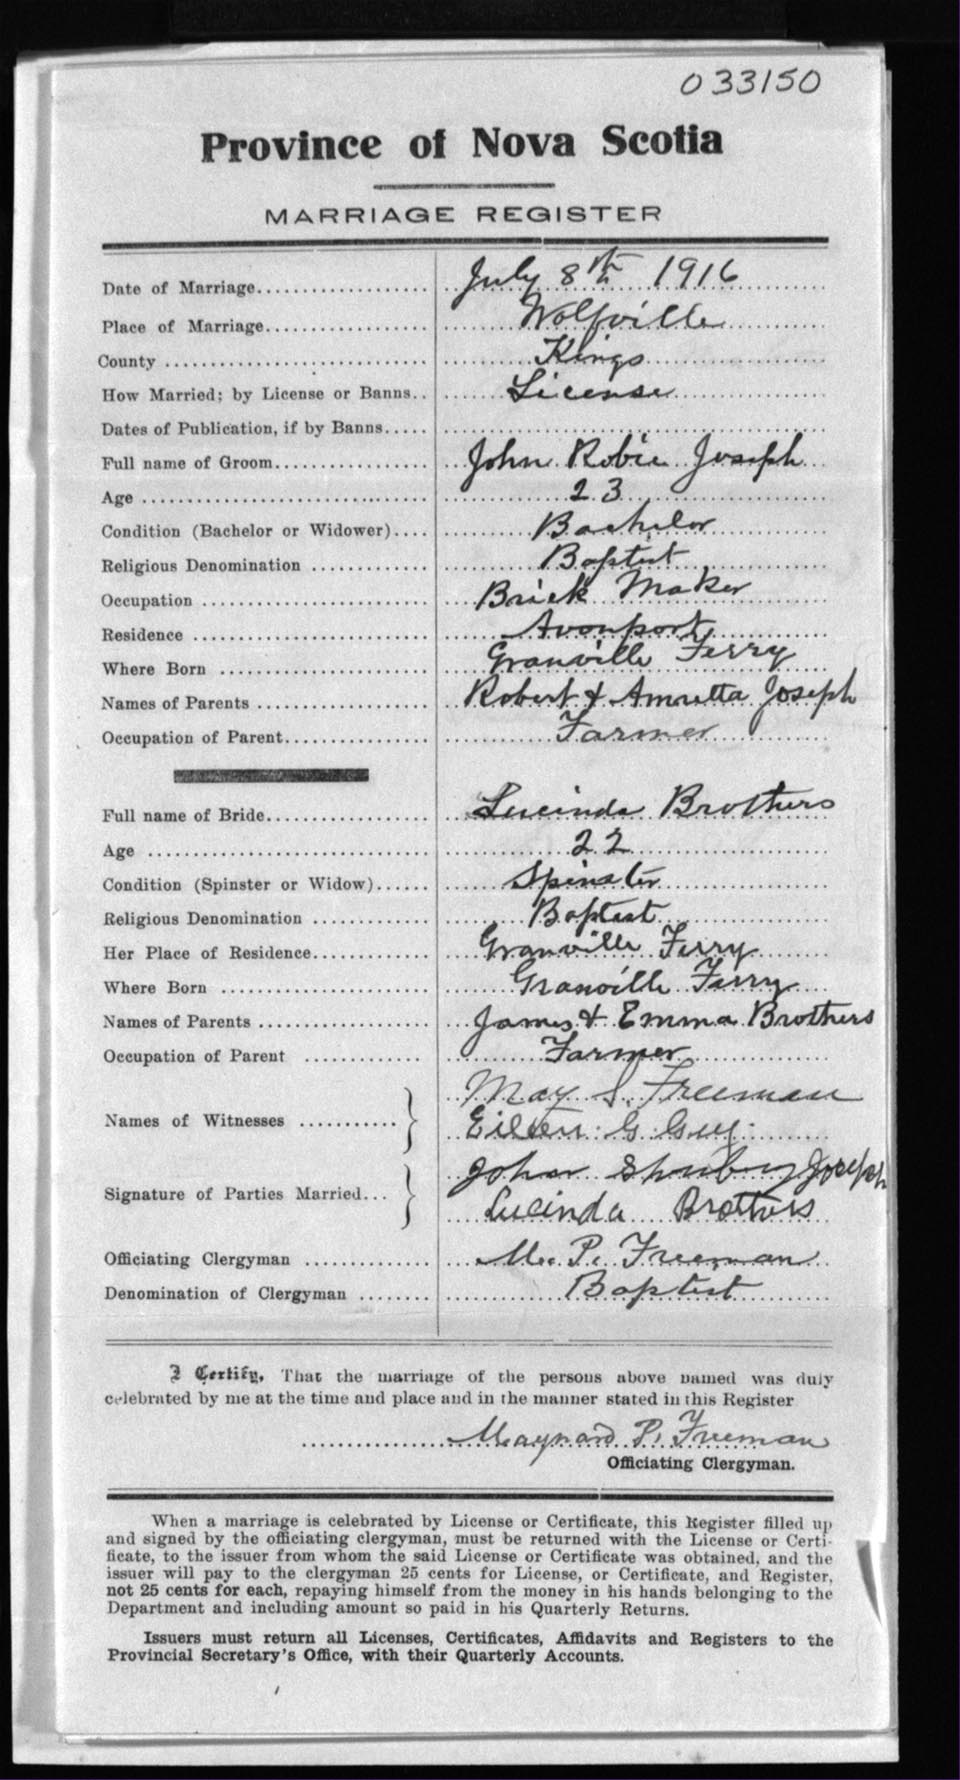 033150
Province of Nova Scotia
MARRIAGE REGISTER
Date of Marriage.................... July 8th 1916
Place of Marriage................... Wolfville
County ........................... Kings
How Married; by License or Banns.. License
Dates of Publication, if by Banns.....
Full name of Groom................. John Robie Joseph
Age ............................. 23
Condition (Bachelor or Widower).... Bachelor
Religious Denomination ............ Baptist
Occupation ....................... Brick Maker
Residence ........................ Avonport
Where Born ...................... Granville Ferry
Names of Parents .................. Robert & Amretta Joseph
Occupation of Parent............... Farmer
Full name of Bride................. Lucinda Brothers
Age ............................. 22
Condition (Spinster or Widow)...... Spinster
Religious Denomination ............ Baptist
Her Place of Residence............. Granville Ferry
Where Born ...................... Granville Ferry
Names of Parents .................. James & Emma Brothers
Occupation of Parent ............ Farmer
May S. Freeman
Names of Witnesses ...........
G. Guy
John Joseph
Signature of Parties Married...
Lucinda Brothers
Officiating Clergyman ............. M. P. Freeman
Denomination of Clergyman ........ Baptist
I Certify, That the marriage of the persons above named was duly
celebrated by me at the time and place and in the manner stated in this Register
Maynard P. Freeman
Officiating Clergyman.
When a marriage is celebrated by License or Certificate, this Register filled up
and signed by the officiating clergyman, must be returned with the License or Certi-
ficate, to the issuer from whom the said License or Certificate was obtained, and the
issuer will pay to the clergyman 25 cents for License, or Certificate, and Register,
not 25 cents for each, repaying himself from the money in his hands belonging to the
Department and including amount so paid in his Quarterly Returns.
Issuers must return all Licenses, Certificates, Affidavits and Registers to the
Provincial Secretary's Office, with their Quarterly Accounts.